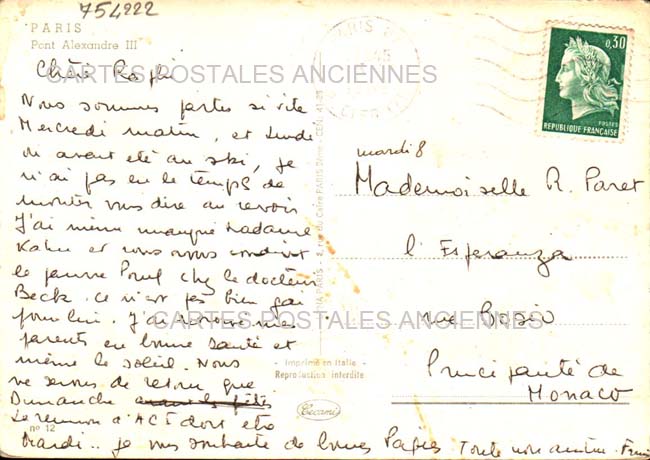 754222
PARIS
Pont Alexandre III
CARTES POSTALES ANCIENNES
Nous sommes partis si vite
Mercredi matin, et
avant été au ski, je
n'ai pas eu le temps de
monter vous dire au revoir
J'ai même manqué Madame
Kahn et nous avons conduit
le pauvre Paul chez le docteur
Beck. ce n'est pas bien gai
pour lui. J'ai retrouvé mes
parents en bonne santé et
même le soleil. Nous
ne serons de retour que
Dimanche
La reunion d'ACI doit être
Mardi.. je vous souhaite de bonnes Pâques Toute mon amitié.
nº 12
CARTES POSTALES ANCIENNES
- Imprimé en Italie -
Reproduction interdite
PARIS
0,30
POSTES
REPUBLIQUE FRANÇAISE
mardi 8
Mademoiselle R. Paret
l'Esperanza
rue Bosio
Principauté de
Monaco